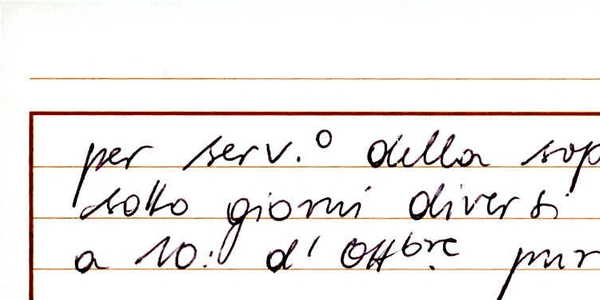 per serv.º della sop
sotto giorni diversi
a 10: d' Ottbre pur